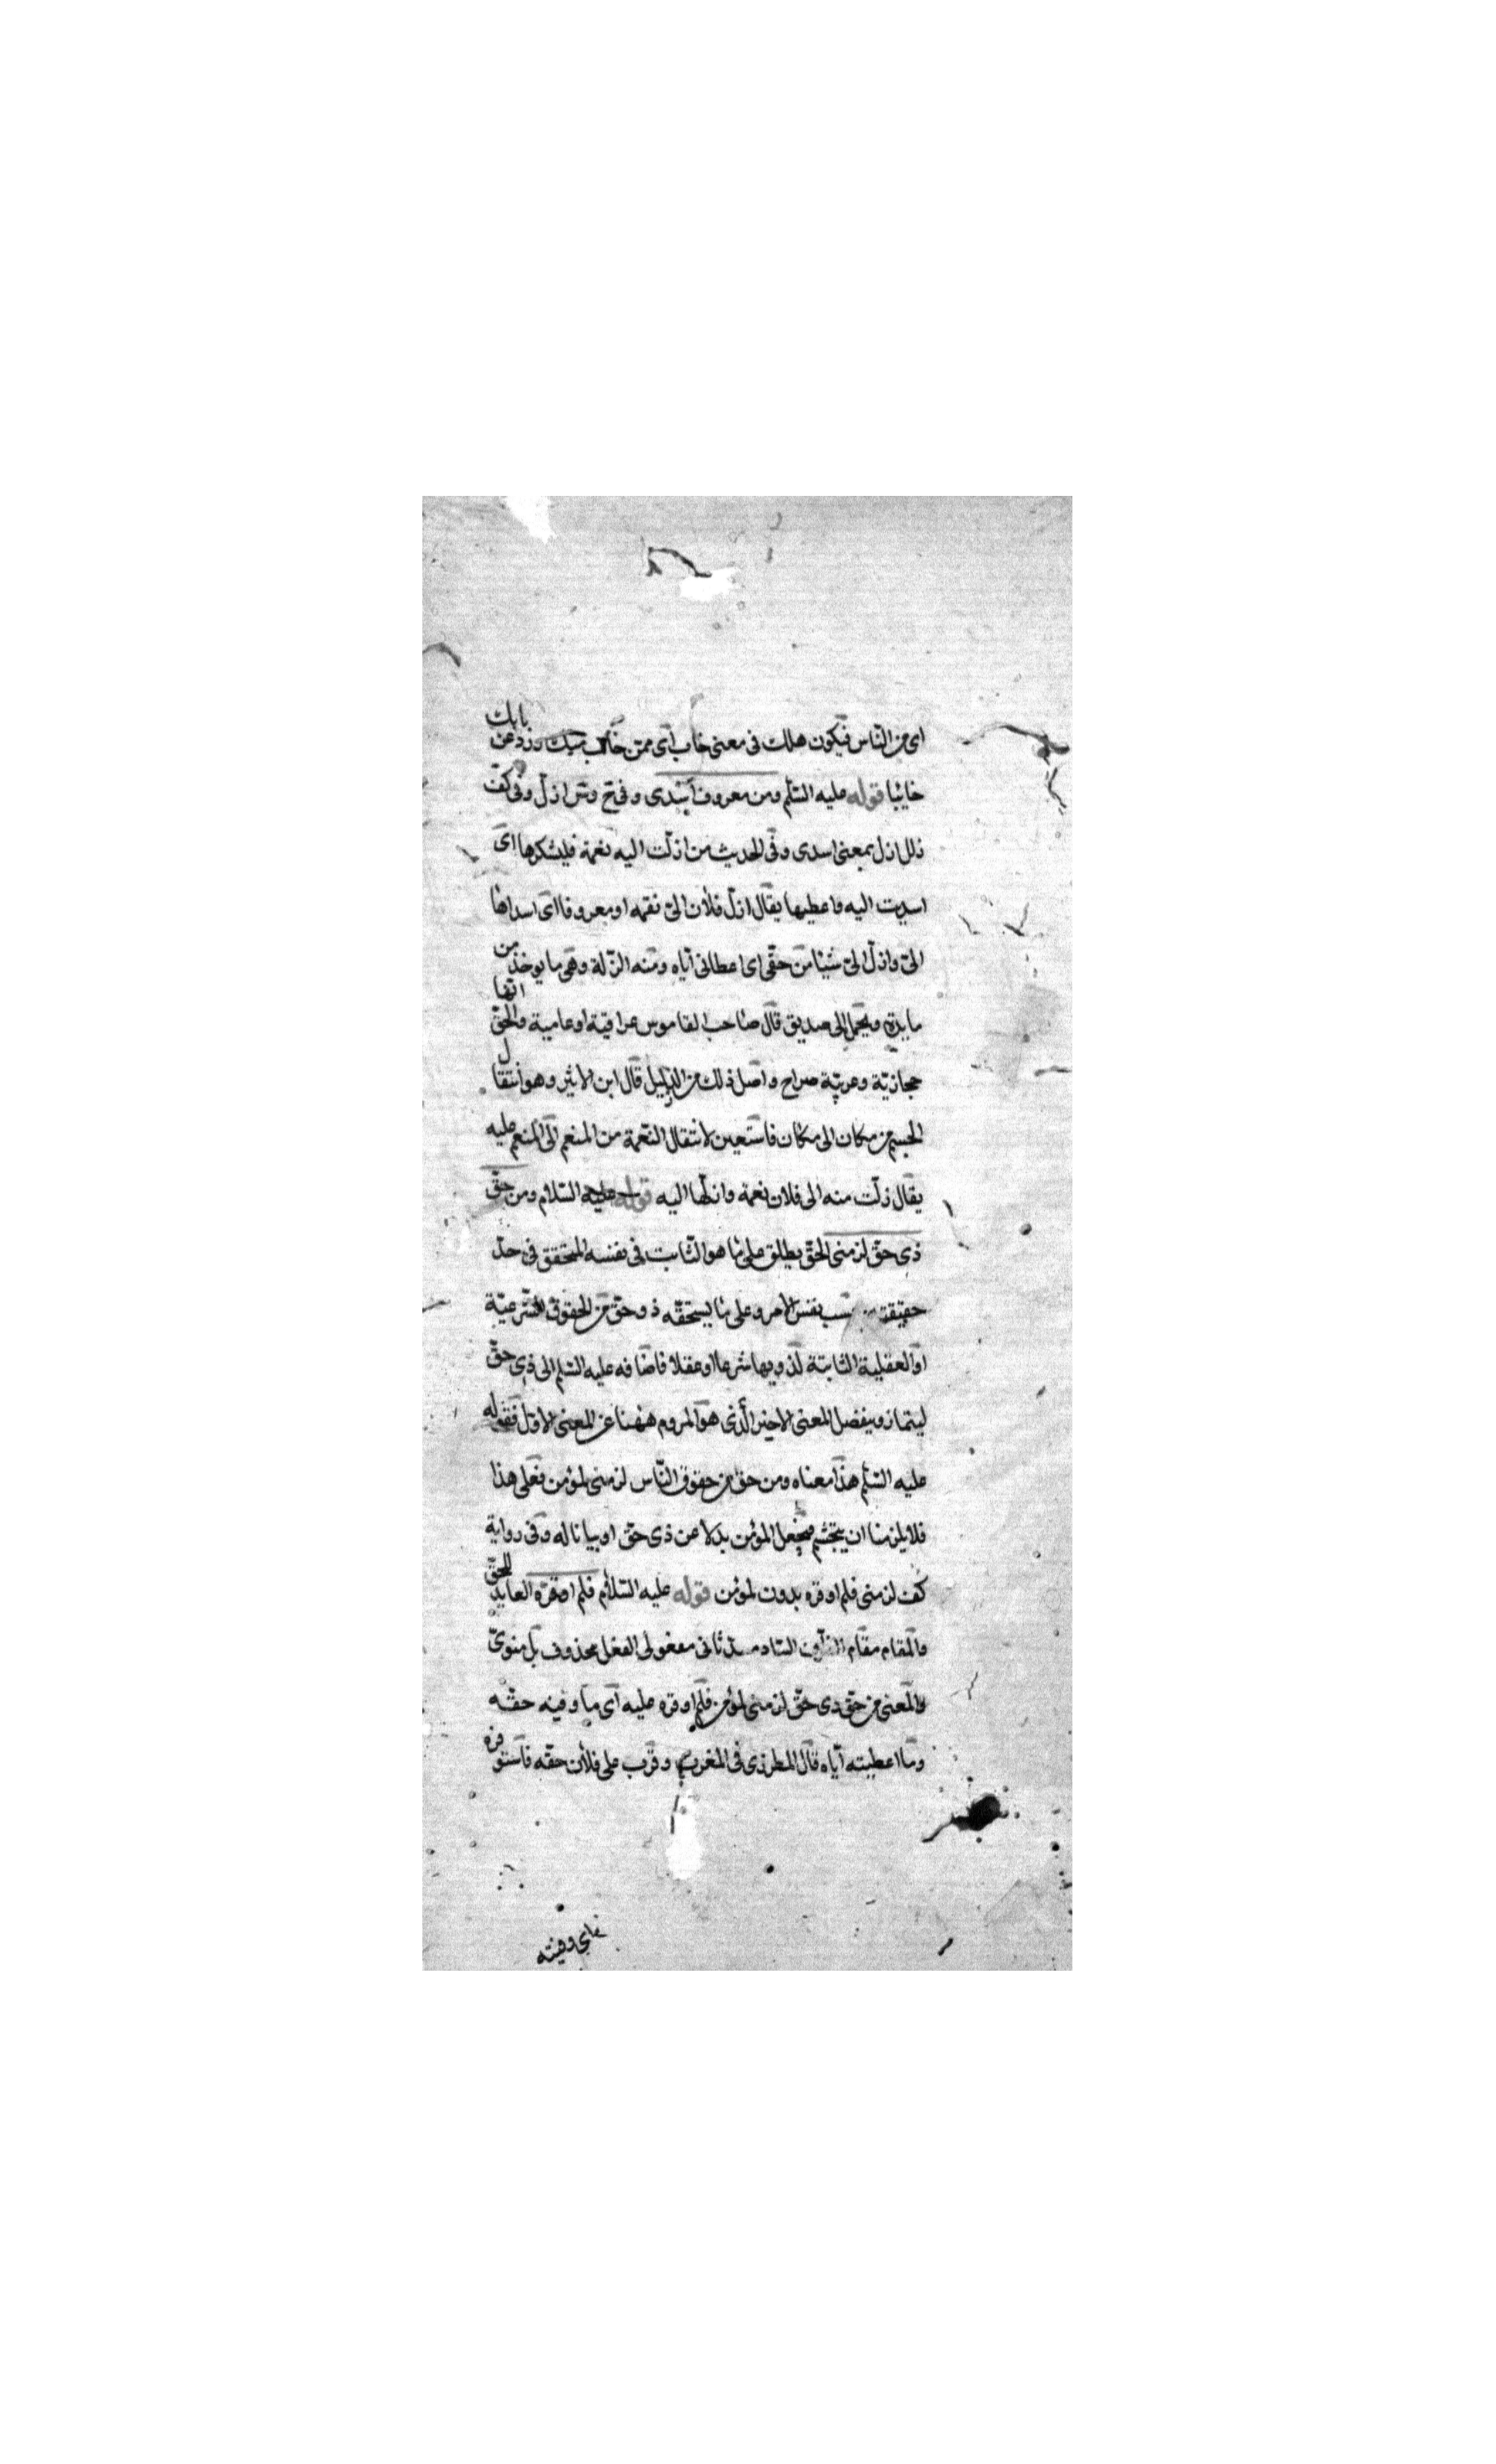 اى من النّاس فيكون هلك فى معنى خاب اى ممّن خاب منك وردّ عن بابك
خايبا قوله عليه السّلم ومن معروف اسدى وفى خ وش ازلّ وفى كف
زلل ازل بمعنى اسدى وفى الحديث من ازلّت اليه نعمة فليشكرها اى
اسديت اليه واعطيها يقال ازلّ فلان الىّ نعمة او معروفا اى اسداها
الىّ وازلّ الىّ شيئا من حقّى اى اعطانى ايّاه ومنه الزّلة وهى ما يوخذ من
مايدة ويحمل الى صديق قال صاحب القاموس عراقية او عامية والحقّ انّها
حجازيّة وعربيّة صراح واصل ذلك من الزليل قال ابن الاثير وهو انتقال
الجسم من مكان الى مكان فاستعير لانتقال النّعمة من المنعم الى المنعم عليه
يقال زلّت منه الى فلان نعمة وازلّها اليه قوله عليه السّلام ومن حقّ
ذى حقّ لزمنى الحقّ يطلق على ما هو الثّابت فى نفسه المتحقق فى حدّ
حقيقته بنفس الامر وعلى ما يستحقّه ذو حقّ من الحقوق الشّرعيّة
او العقلية الثابتة لذويها شرعا او عقلا فاضافه عليه السّلم الى ذى حقّ
ليتماز وينفصل المعنى الاخير الّذى هو المروم ههنا عن المعنى الاوّل فقوله
عليه السّلم هذا معناه ومن حقّ من حقوق النّاس لزمنى لمؤمن فعلى هذا
فلا يلزمنا ان يتجشم فيجعل المؤمن بدلا عن ذى حقّ او بيانا له وفى رواية
كف لزمنى فلم اوفره بدون لمؤمن قوله عليه السّلام فلم اوفّره العايد للحقّ
والمقام مقام السّاد مسدّ ثانى مفعولى الفعل محذوف بل منوىّ
والمعنى من حقّ ذى حقّ لزمنى لمؤمن فلم اوفره عليه اى ما وفيته حقّه
وما اعطيته ايّاه قال المطرزى فى المغرب وفرت على فلان حقّه فاستوفره